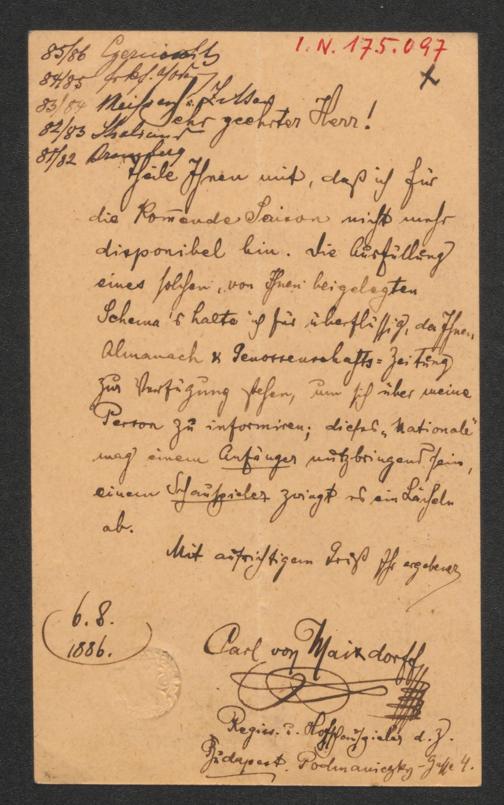 I. N. 175.097
85/86 Czernowitz
84/85
83/84 Meissen
82/83 Stralsund
81/82 Arensburg
Sehr geehrter Herr!
Theile Ihnen mit, daß ich für
die komende Saison nicht mehr
disponibel bin. Die Ausfüllung
eines solchen, von Ihnen beigelegten
Schema's halte ich für überflüssig, da Ihnen
Almanach & Genossenschafts=Zeitung
zur Verfügung stehen, um sich über meine
Person zu informiren; dieses „Nationale"
mag einem Anfänger nutzbringend sein,
einem Schauspieler zwingt es ein Lächeln
ab.
Mit aufrichtigem Gruß Ihr ergebener
6.8.
1886.
Carl von Maixdorff
Regiss. u. Hofschauspieler d. Z.
Budapest. Podmaniczky-Gasse 4.